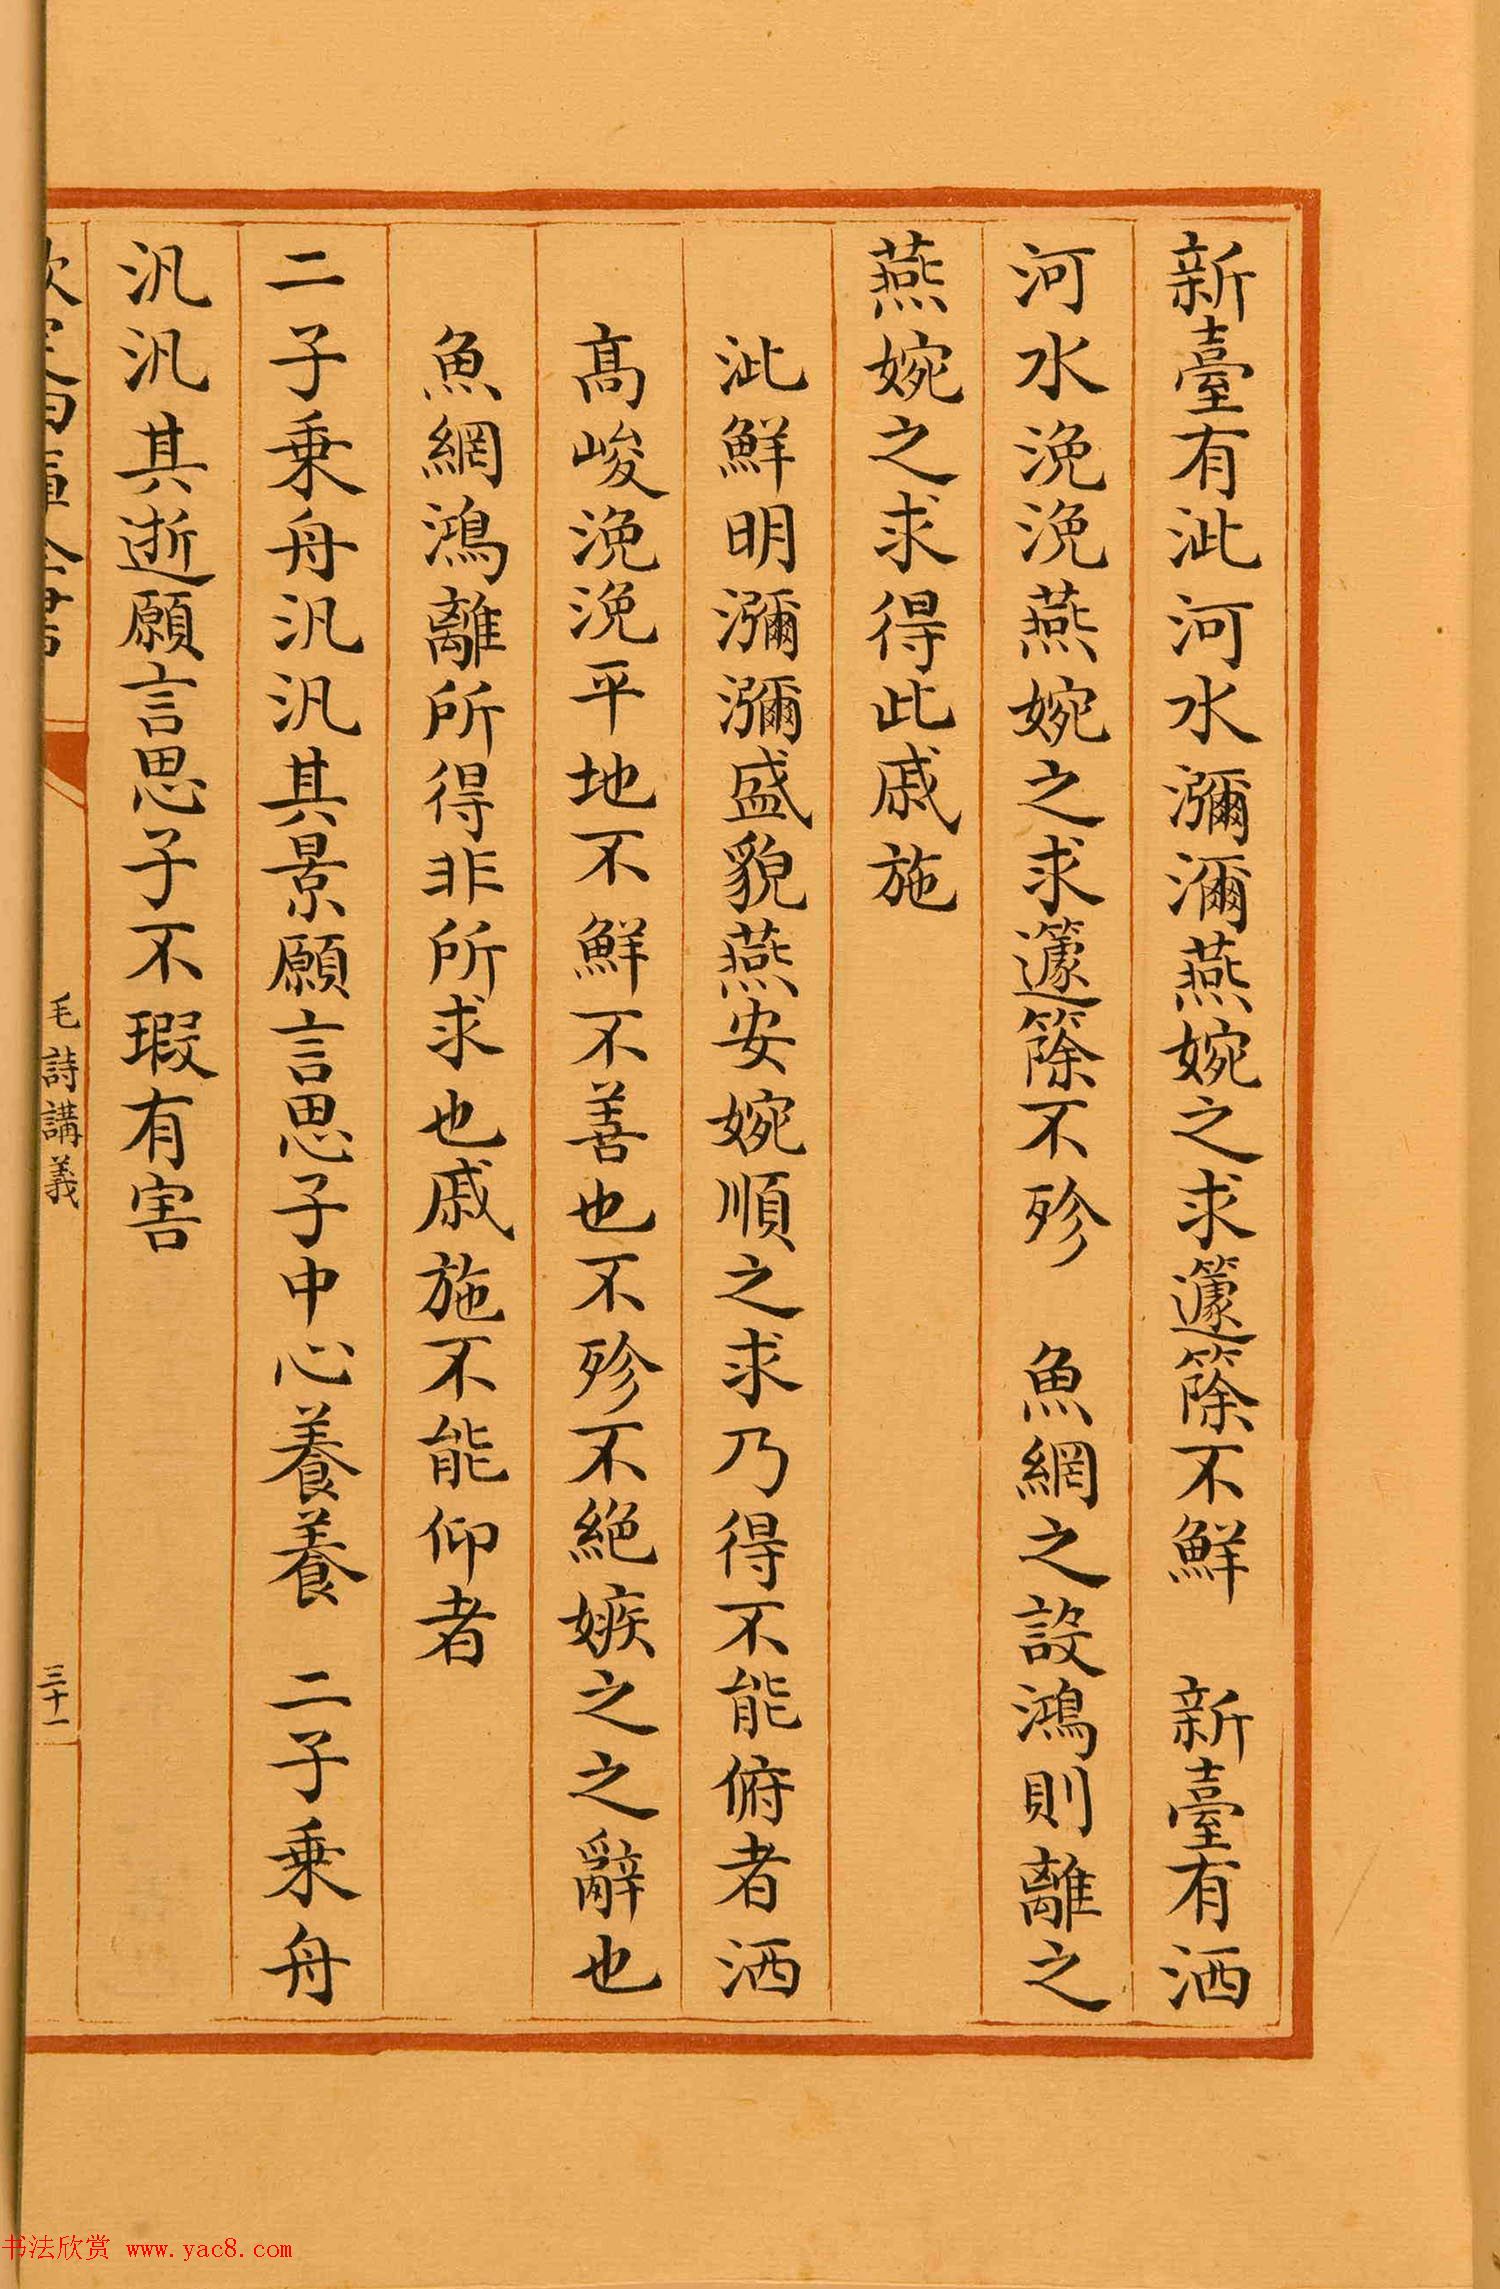 新臺有泚河水瀰瀰燕婉之求籧篨不鮮　新臺有洒
河水浼浼燕婉之求籧篨不殄　魚網之設鴻則離之
燕婉之求得此戚施
泚鮮明瀰瀰盛貌燕安婉順之求乃得不能俯者洒
高峻浼浼平地不鮮不善也不殄不絶嫉之之辭也
魚網鴻離所得非所求也戚施不能仰者
二子乗舟汎汎其景願言思子中心養養　二子乗舟
汎汎其逝願言思子不瑕有害
毛詩講義
三十一
书法欣赏 www.yac8.com